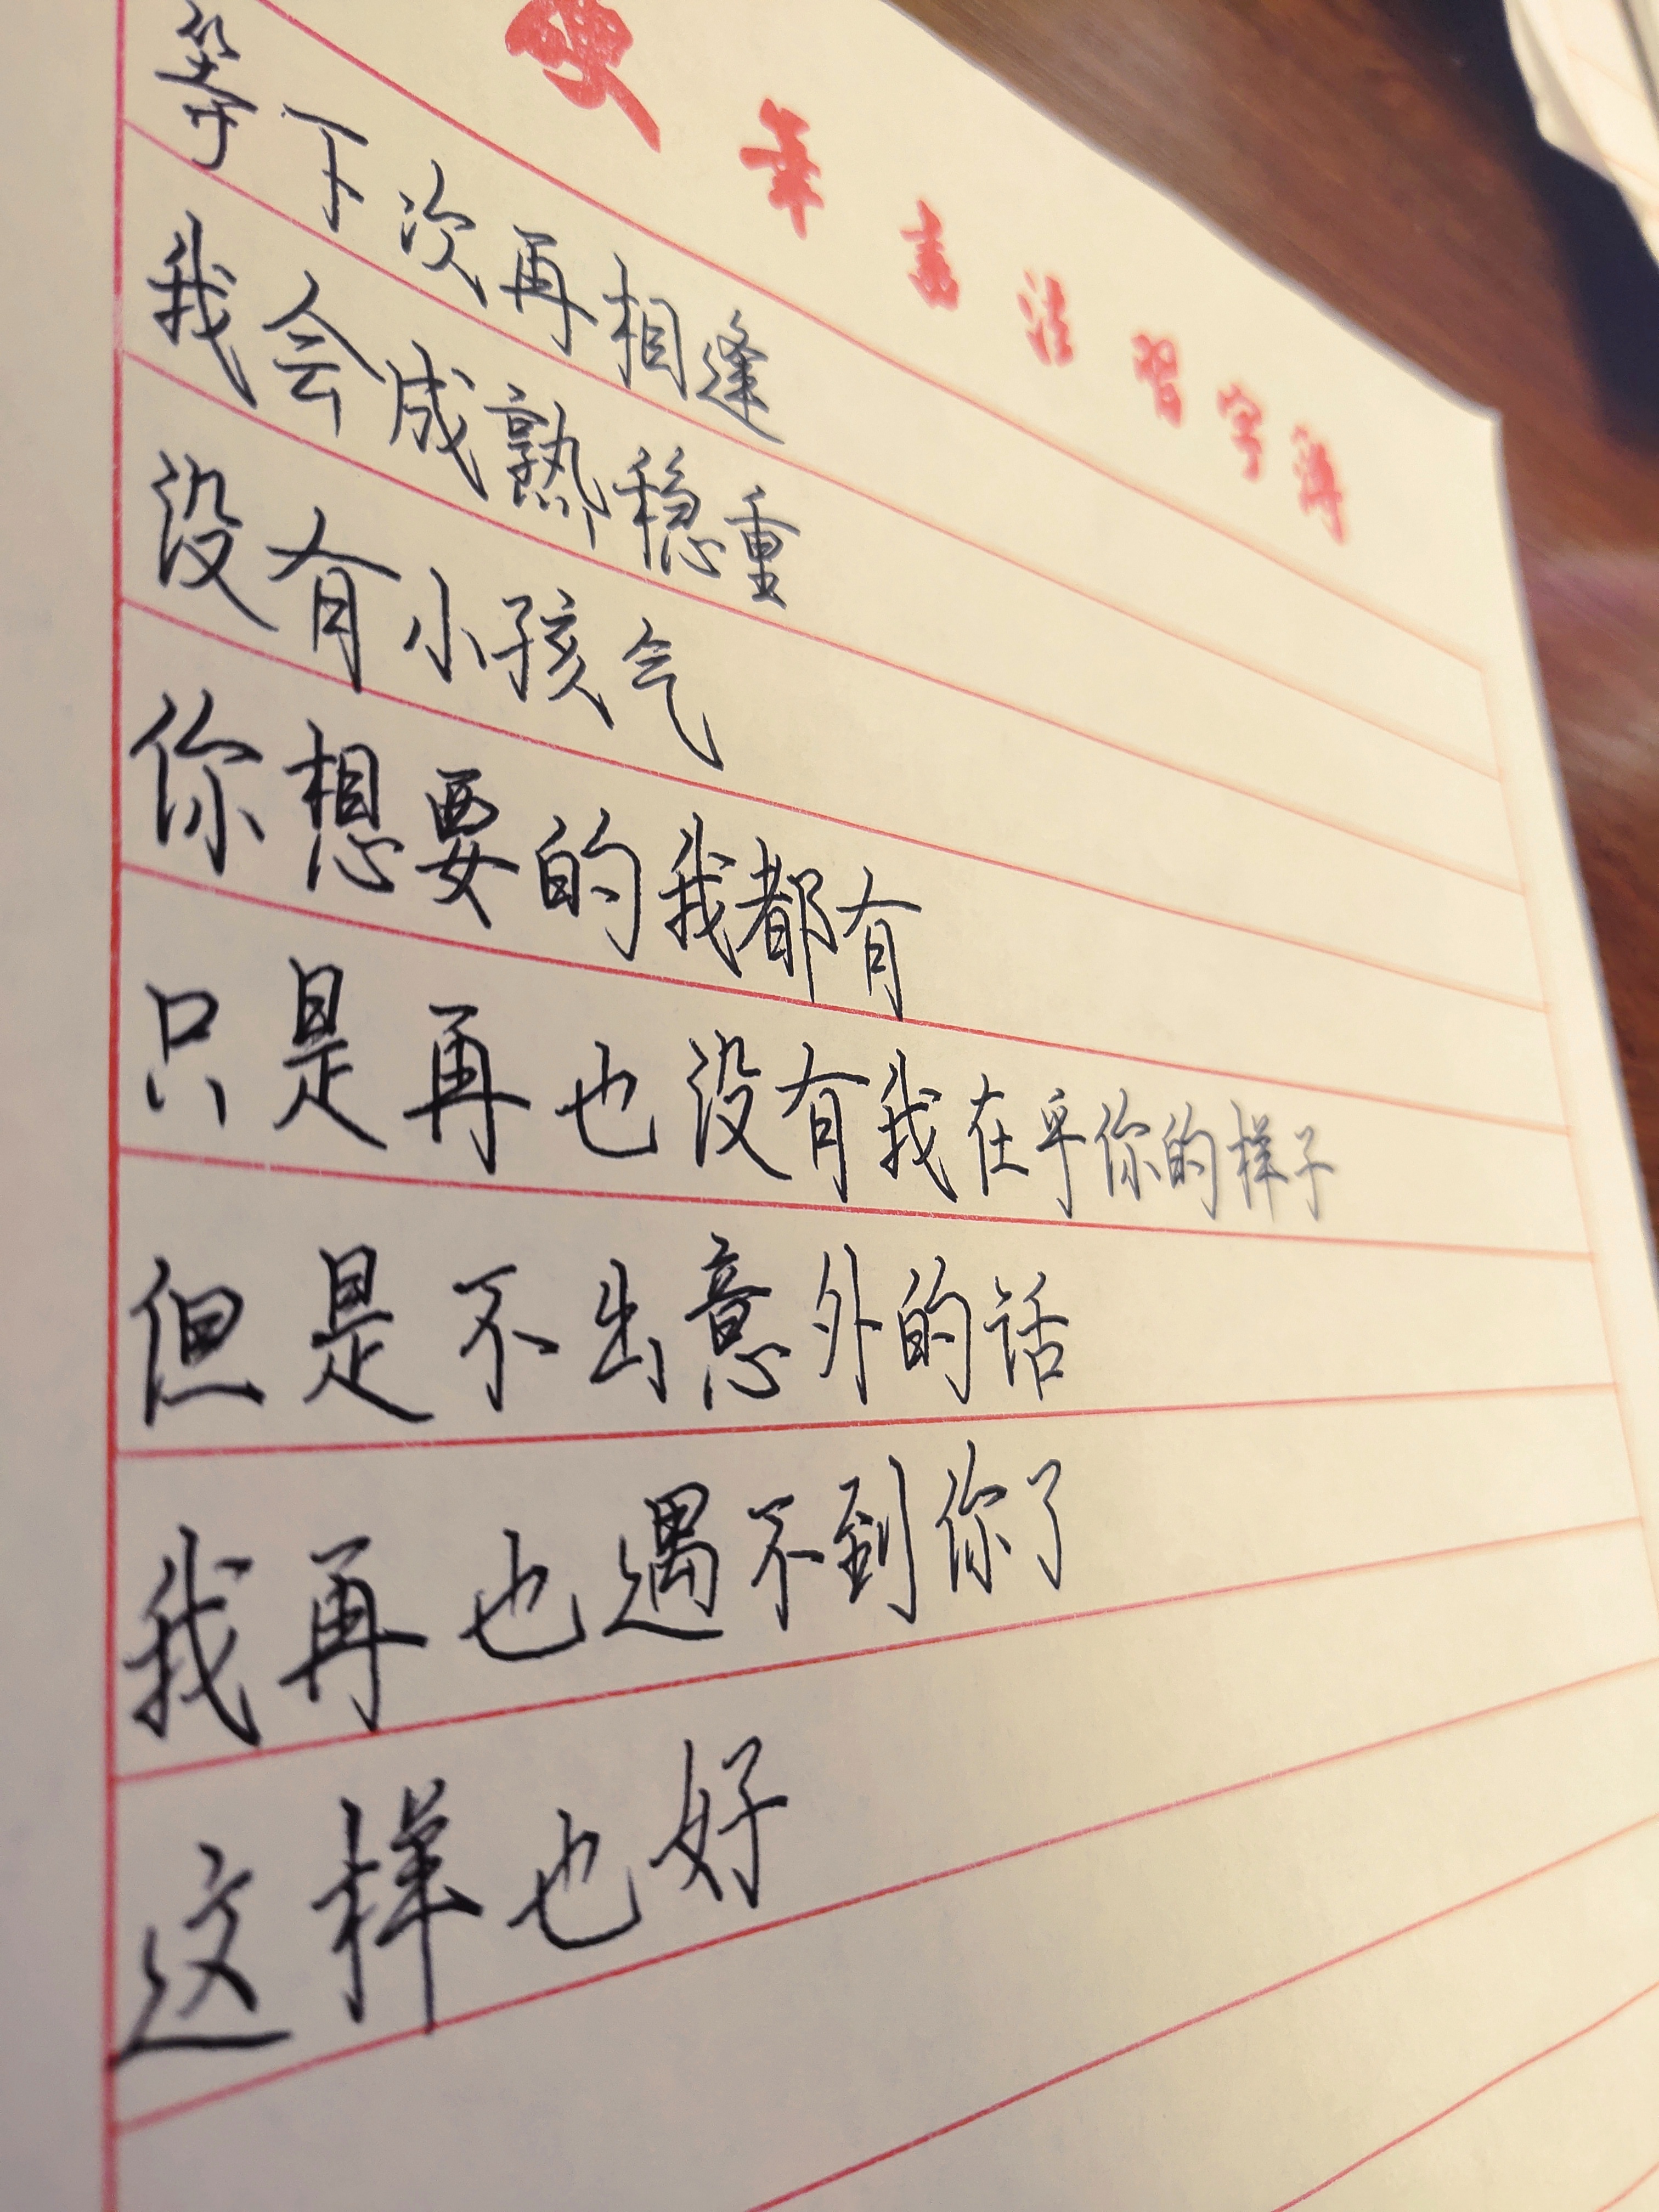 硬笔书法習字簿
等下次再相逢
我会成熟稳重
没有小孩气
你想要的我都有
只是再也没有我在乎你的样子
但是不出意外的话
我再也遇不到你了
这样也好